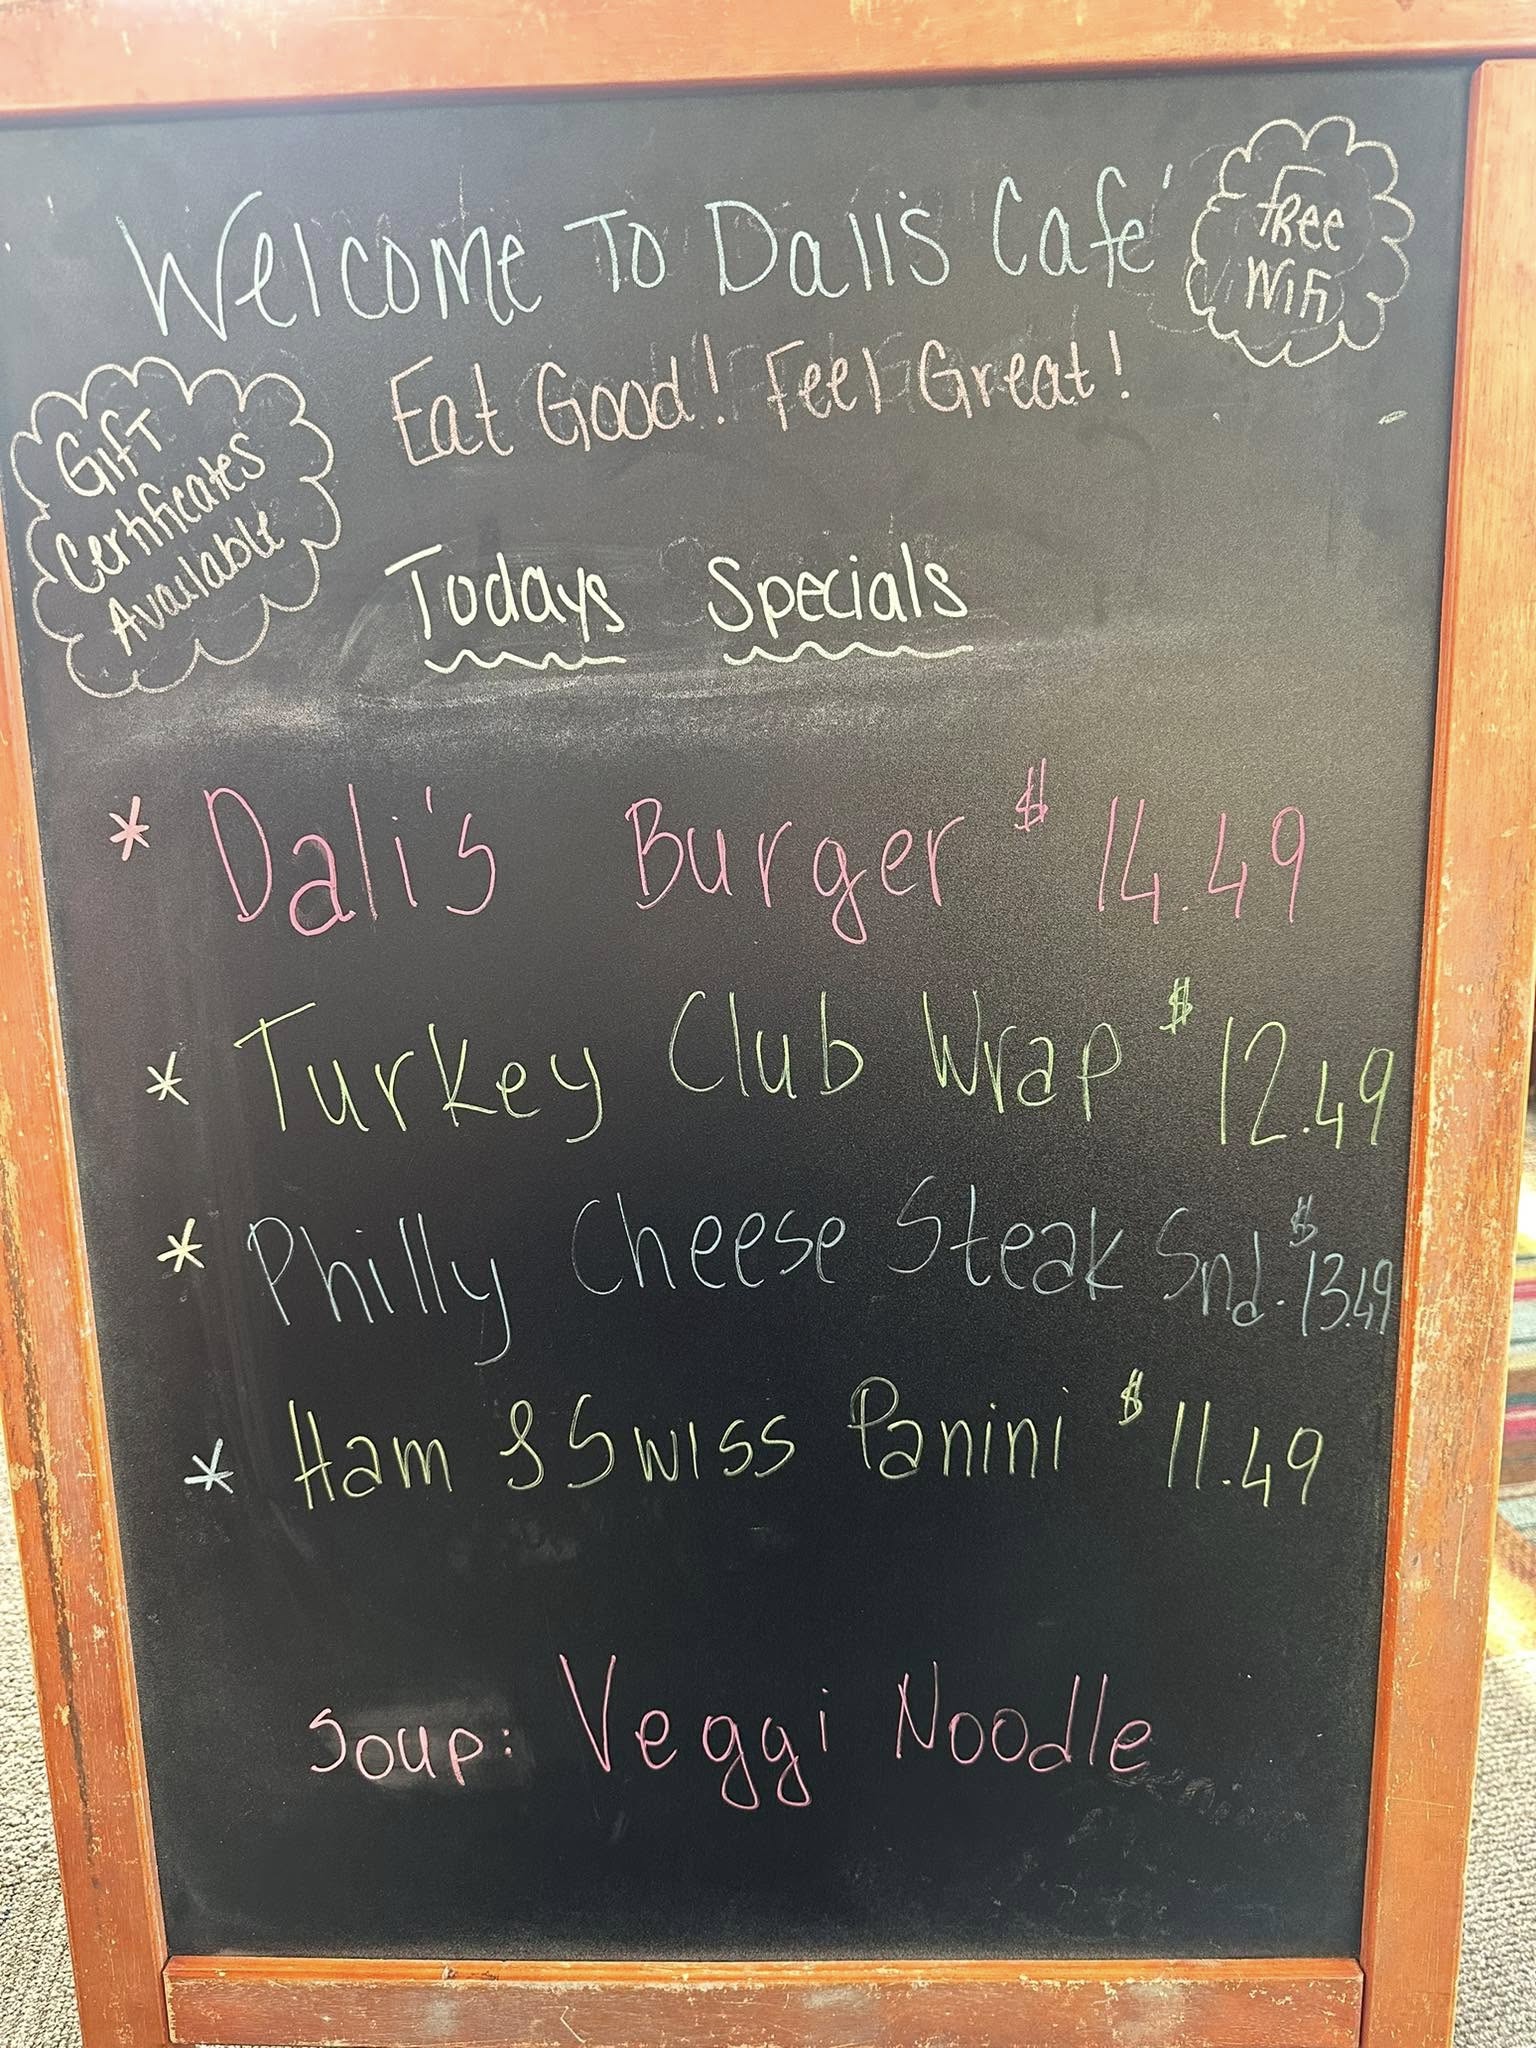 Welcome To Dali's Café
Free
WiFi
Eat Good! Feel Great!
Gift
Certificates
Available
Todays Specials
* Dali's Burger $ 14.49
* Turkey Club Wrap $ 12.49
* Philly Cheese Steak Snd. $ 13.49
* Ham & Swiss Panini $ 11.49
Soup: Veggi Noodle